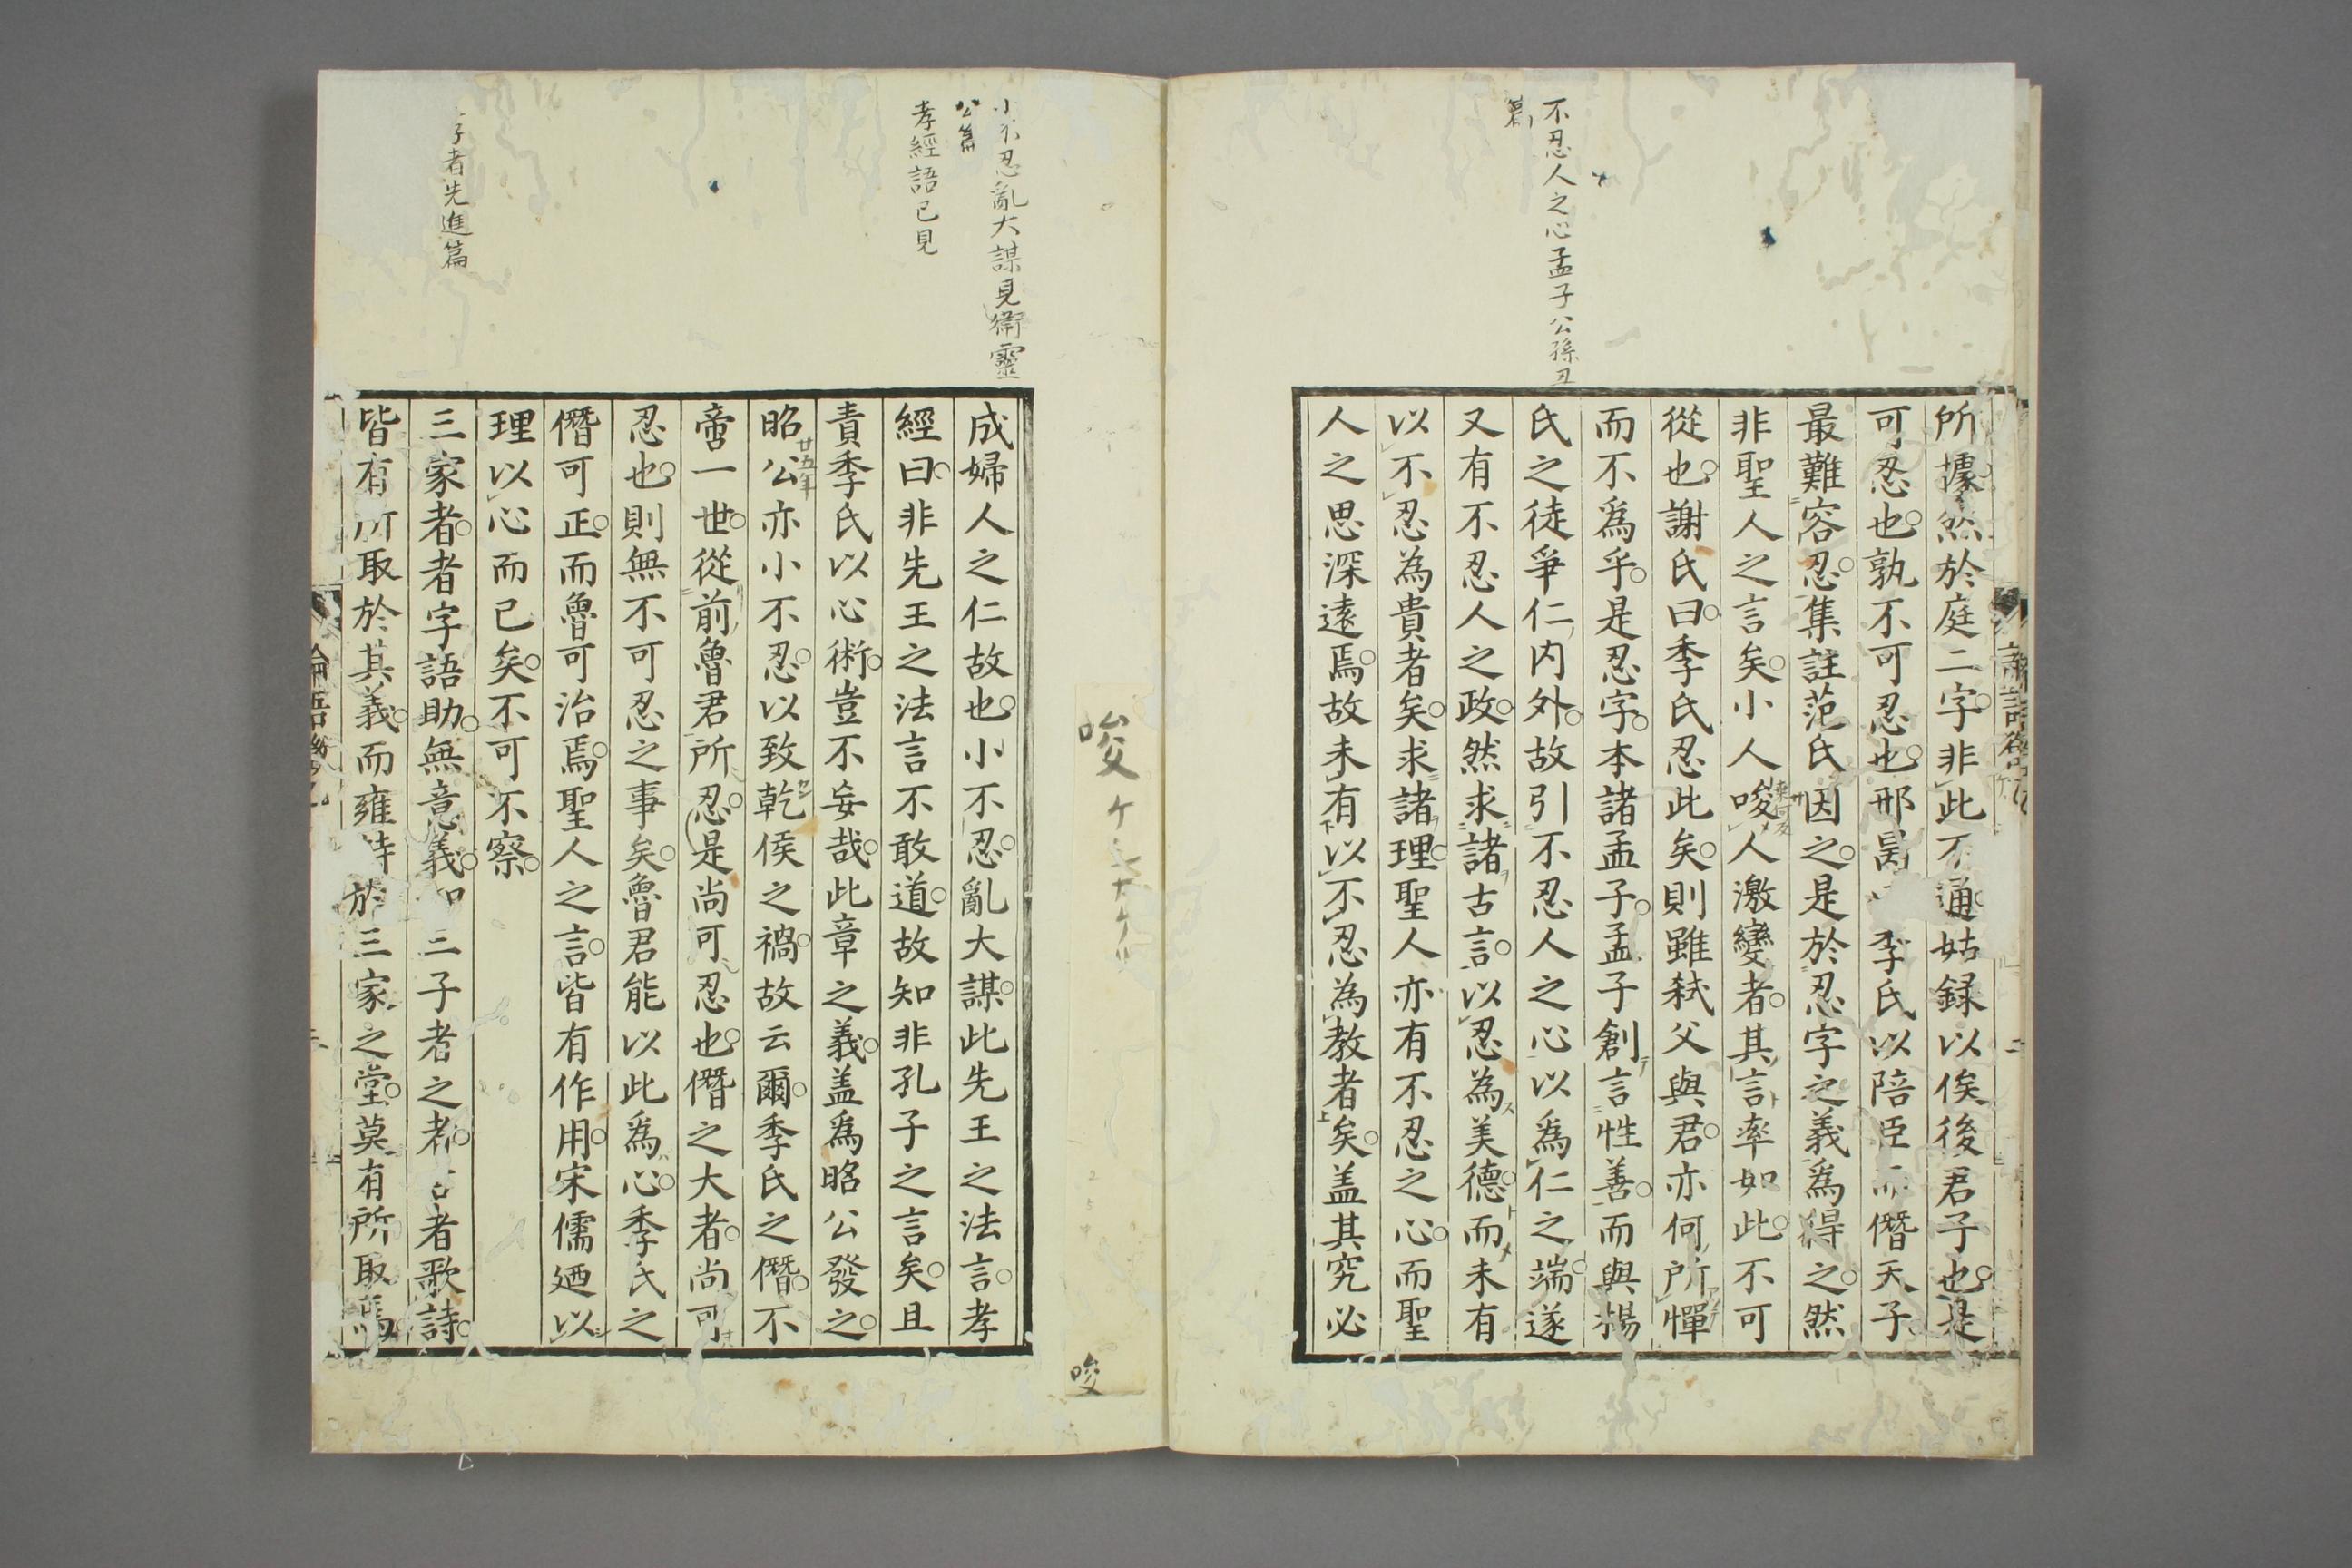 不忍人之心孟子公孫丑
篇
所據然於庭二字非此不通姑録以俟後君子也是
可忍也孰不可忍也邢昺 季氏以陪臣而僭天子
最難容忍集註范氏因之是於忍字之義爲得之然
非聖人之言矣小人唆人激變者其言率如此不可
從也謝氏曰季氏忍此矣則雖弑父與君亦何所憚
而不爲乎是忍字本諸孟子孟子創言性善而與楊
氏之徒爭仁内外故引不忍人之心以爲仁之端遂
又有不忍人之政然求諸古言以忍為美德而未有
以不忍為貴者矣求諸理聖人亦有不忍之心而聖
人之思深遠焉故未有以不忍為教者矣盖其究必
唆
唆
小不忍亂大謀見衛靈
公篇
孝經語已見
子者先進篇
成婦人之仁故也小不忍亂大謀此先王之法言孝
經曰非先王之法言不敢道故知非孔子之言矣且
責季氏以心術豈不妄哉此章之義盖爲昭公發之
昭公亦小不忍以致乾侯之禍故云爾季氏之僭不
廿五年
啻一世從前魯君所忍是尚可忍也僭之大者尚可
忍也則無不可忍之事矣魯君能以此爲心季氏之
僭可正而魯可治焉聖人之言皆有作用宋儒廼以
理以心而已矣不可不察
三家者者字語助無意義如三子者之者 者歌詩
皆有所取於其義而雍詩於三家之堂莫有所取焉